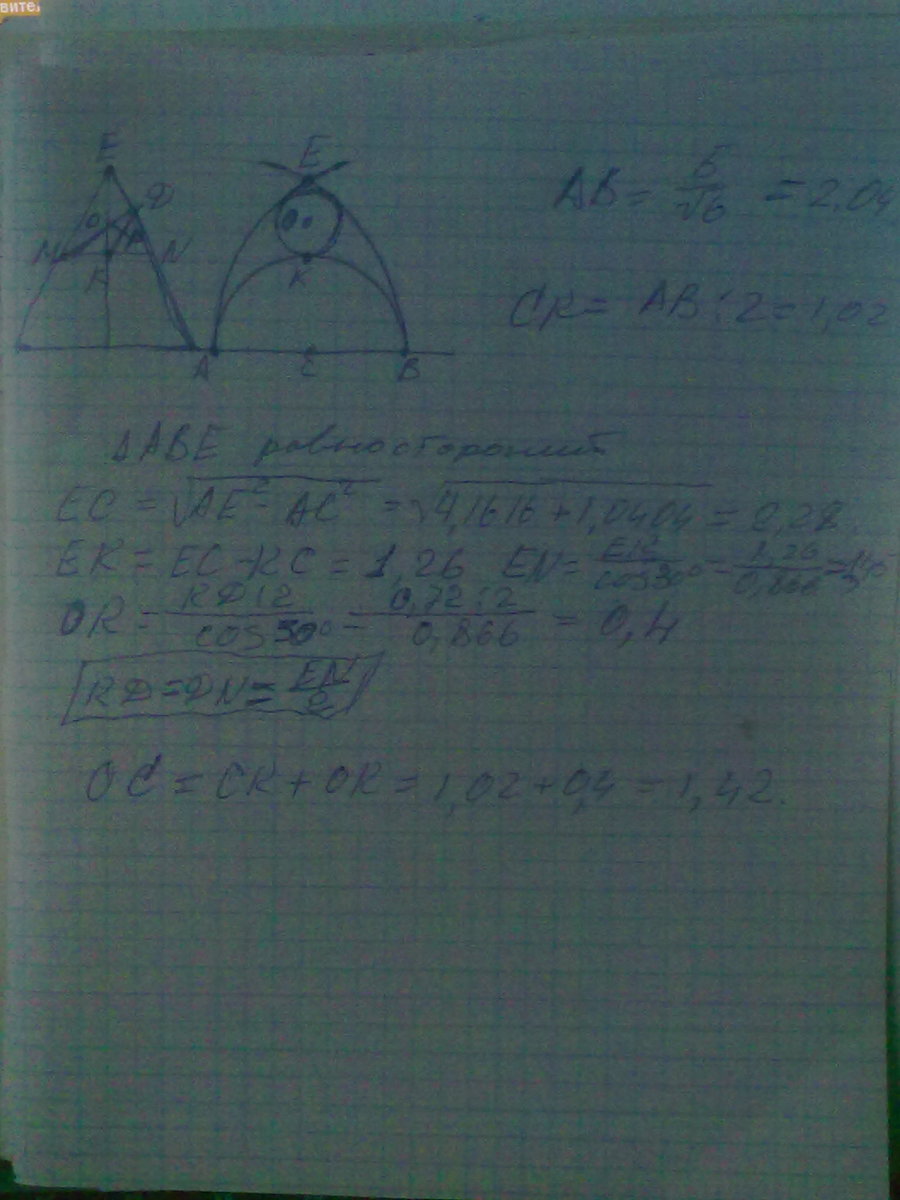 вите
E
E
AB = 5/√6 = 2.04
O
D
O
M
N
K
K
CK = AB : 2 = 1,02
A
C
B
ΔABE равносторонний
EC = √AE² - AC² = √4,1616 + 1,0404 = 2,28
EK = EC - KC = 1,26 EN = EK/cos30° = 1,26/0,866 =
OK = KD:2/cos30° = 0,72:2/0,866 = 0,4
KD = DN = EN/2
OC = CK + OK = 1,02 + 0,4 = 1,42.